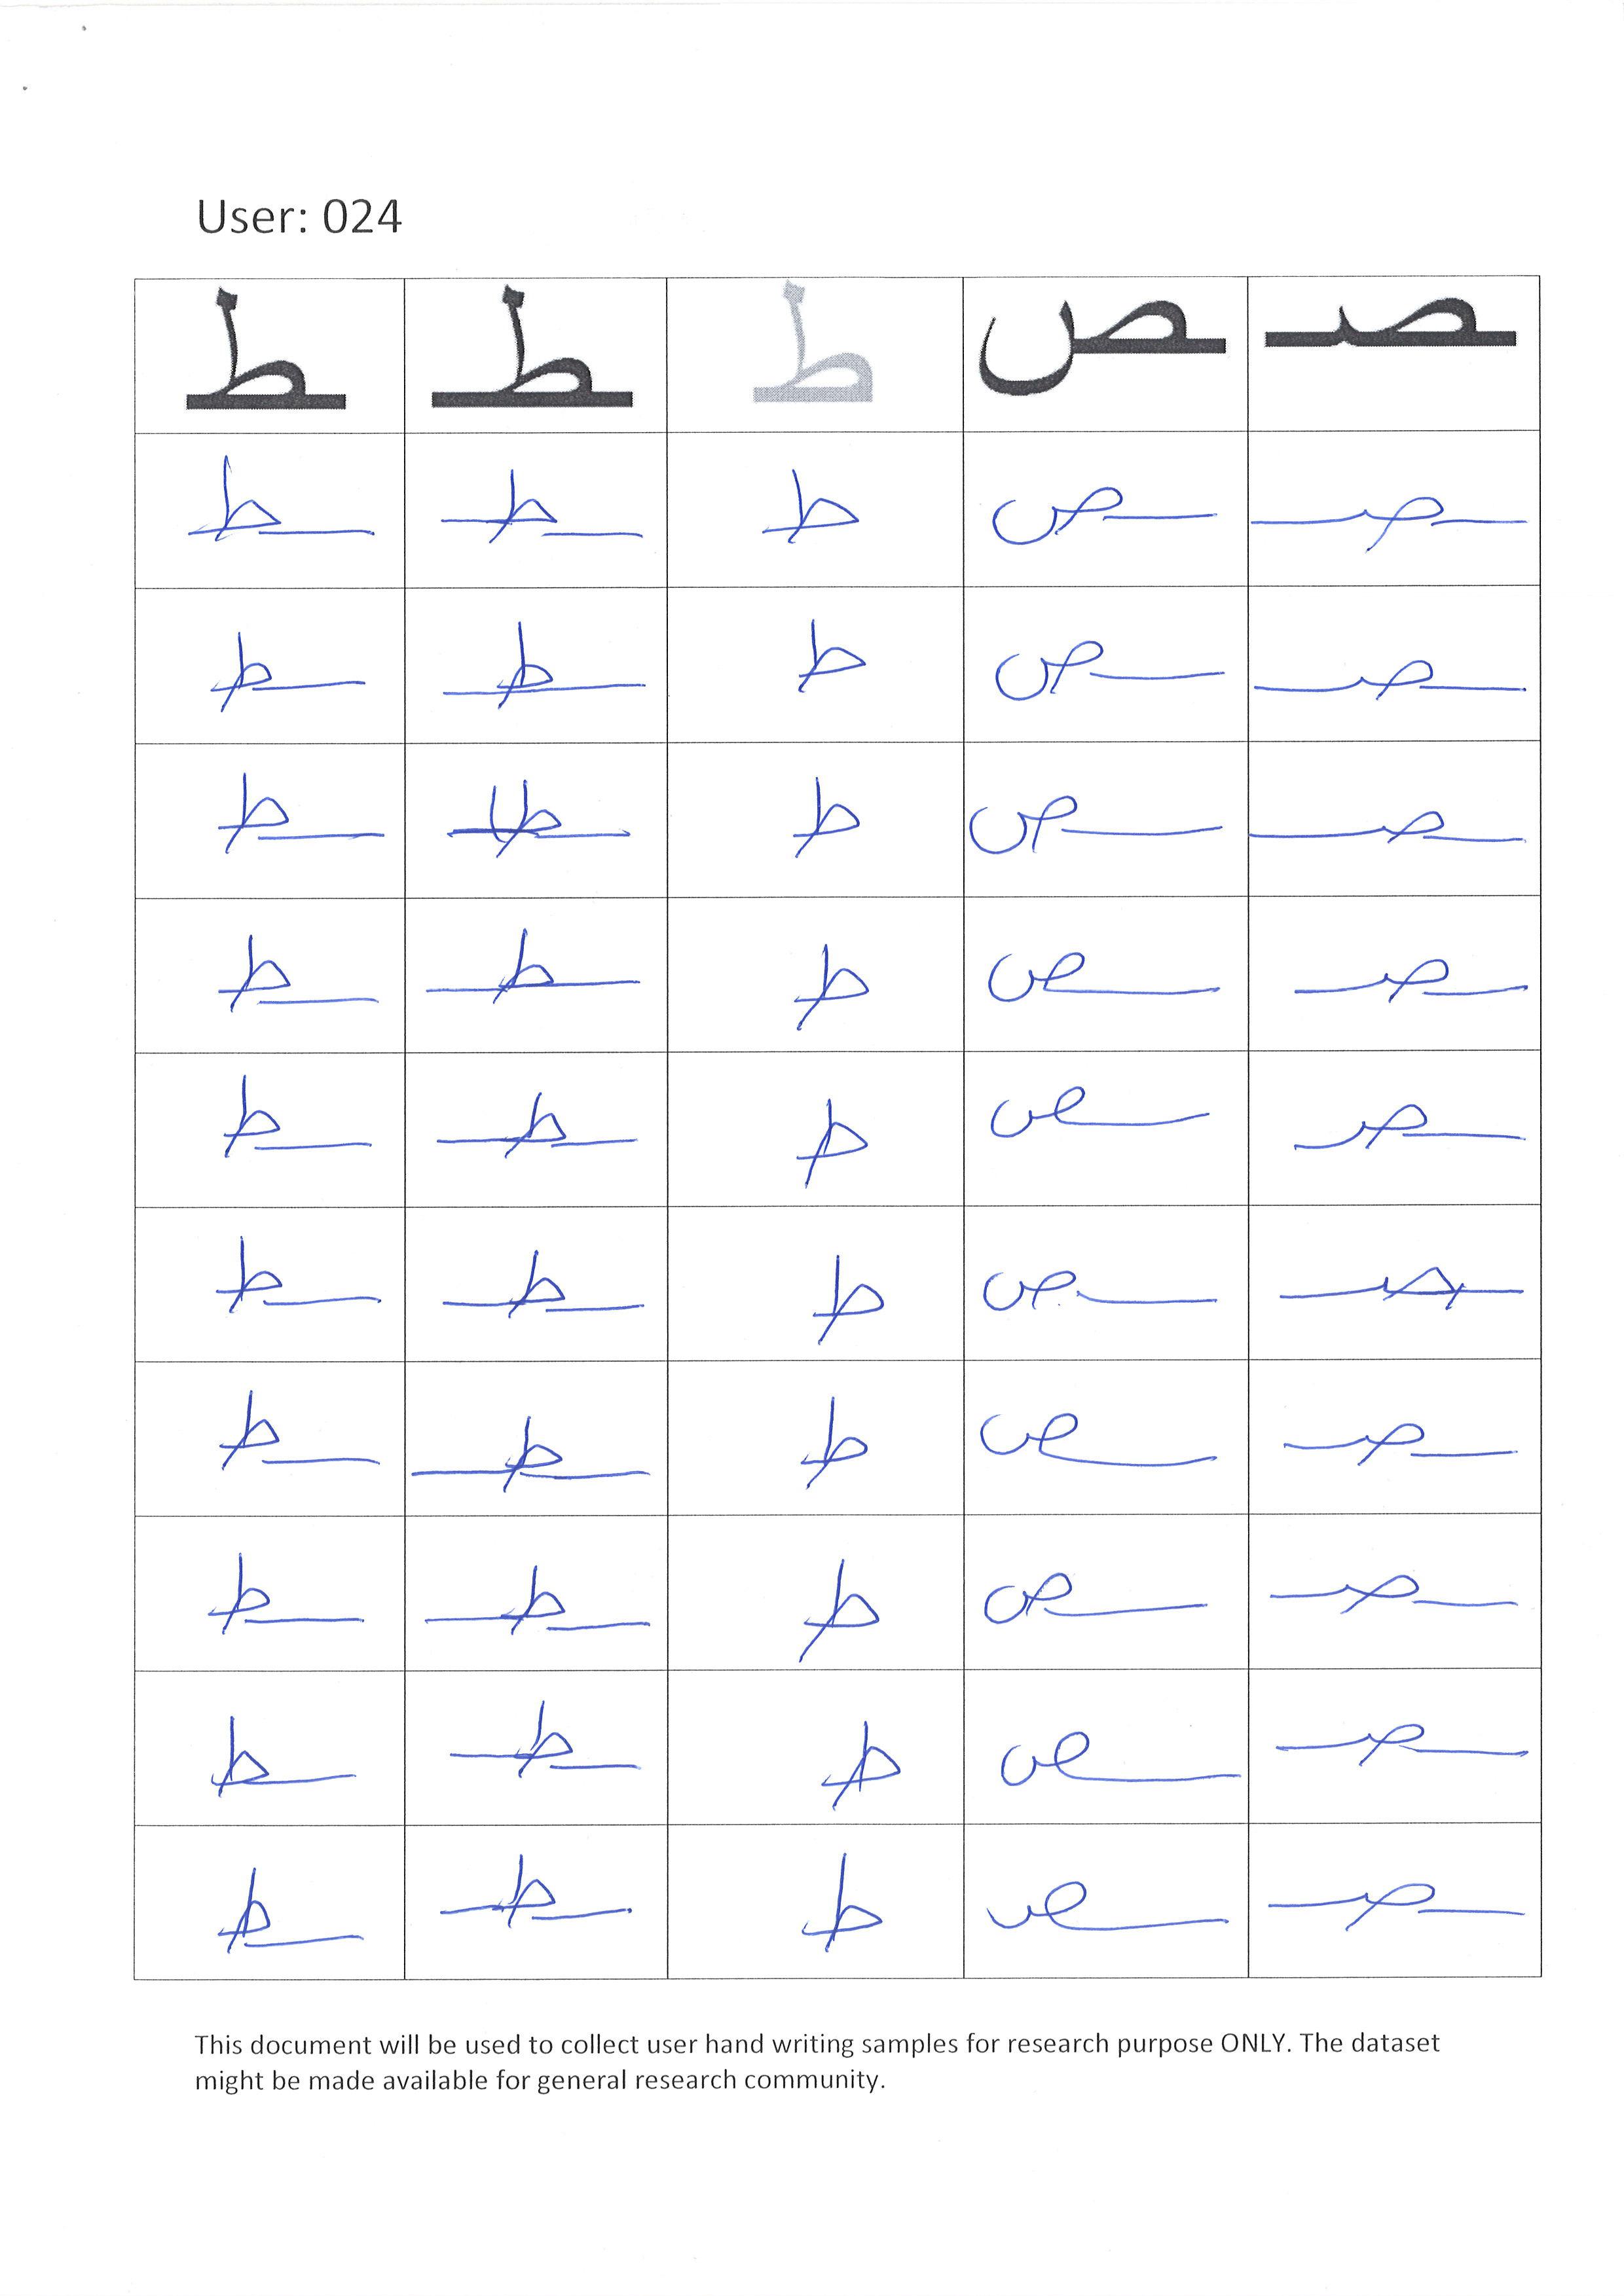 User: 024
ـصـ ـص ط ـطـ ـط
ـصـ ـص ط ـطـ ـط
ـصـ ـص ط ـطـ ـط
ـصـ ـص ط ـطـ ـط
ـصـ ـص ط ـطـ ـط
ـصـ ـص ط ـطـ ـط
ـصـ ـص ط ـطـ ـط
ـصـ ـص ط ـطـ ـط
ـصـ ـص ط ـطـ ـط
ـصـ ـص ط ـطـ ـط
ـصـ ـص ط ـطـ ـط
This document will be used to collect user hand writing samples for research purpose ONLY. The dataset
might be made available for general research community.